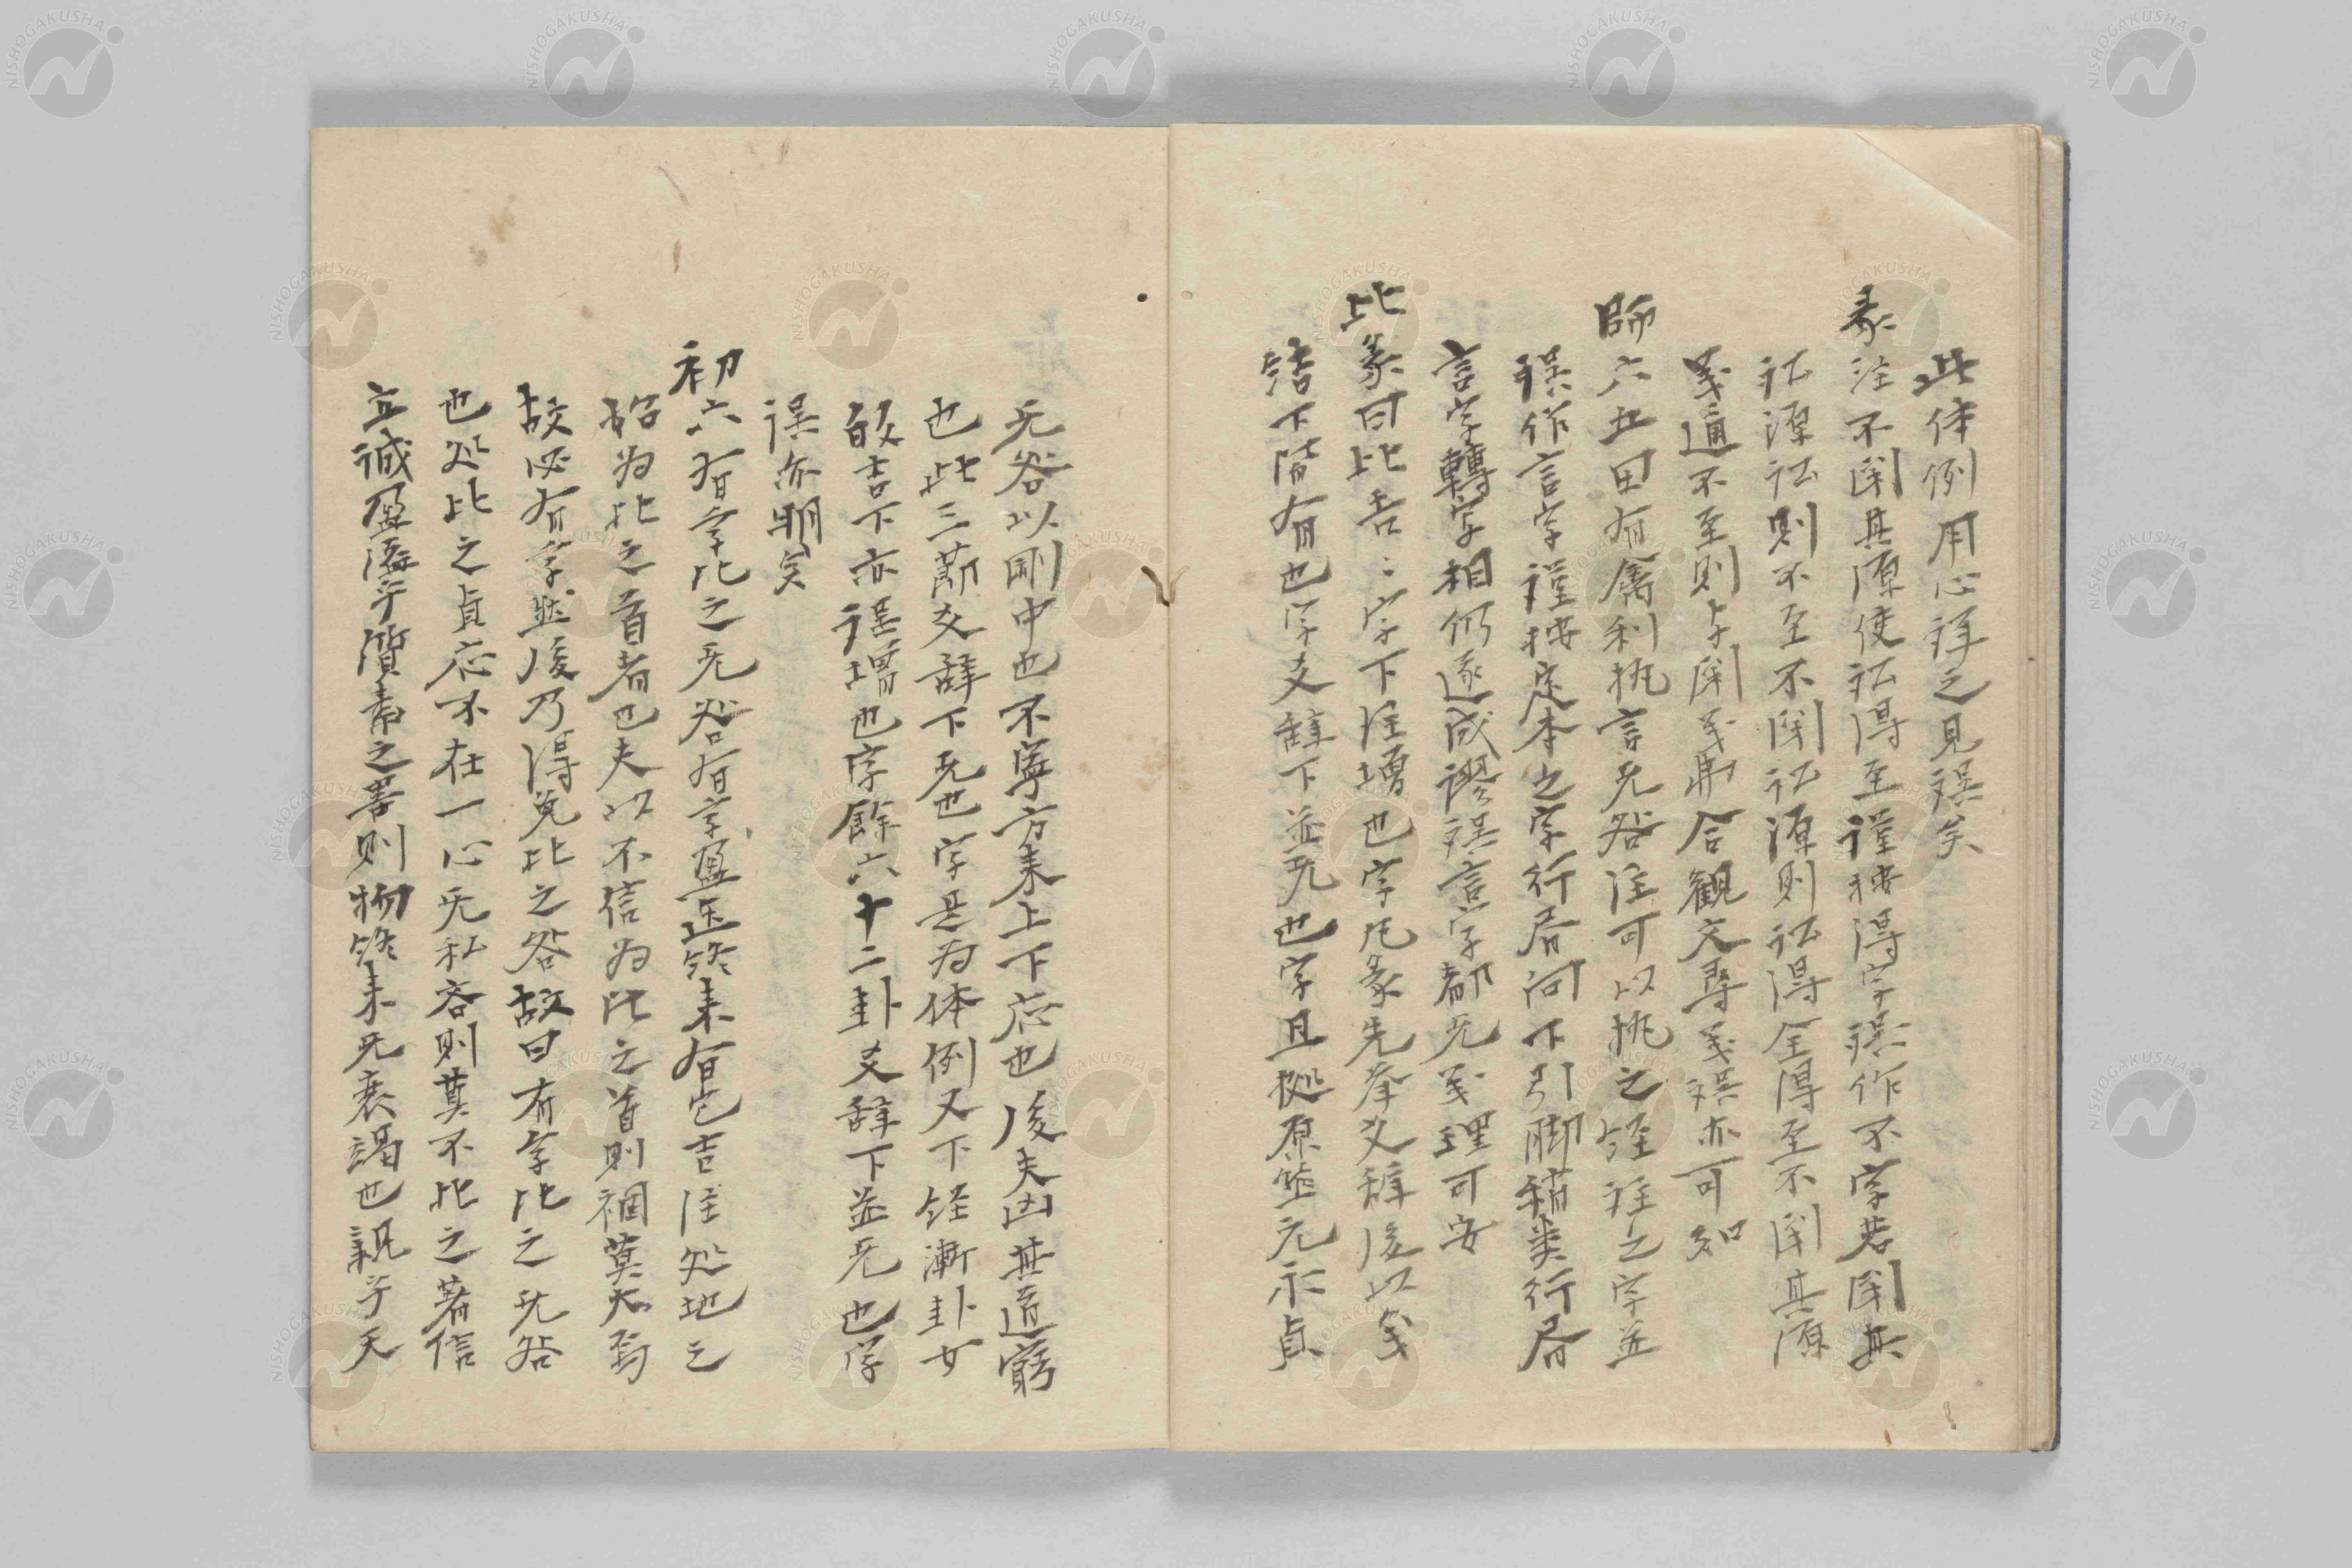 此体例用心詳之見誤矣
彖注不閉其源使訟得至謹按得字誤作不字若閉其
訟源訟則不至不閉訟源則訟得全得至不閉其源
義通不至則与閉義乖合観文尋義誤亦可知
師六五田有禽利執言无咎注可以執之経注之字並
誤作言字謹按定本之字行居向下引脚稍類行居
言字轉寫相仍遂成謬誤言字都无義理可安
比彖曰比吉々字下注増也字凡彖先举爻辞後以義
結下皆有也字爻辞下並无也字且拠原筮元永貞
无咎以剛中也不寧方来上下応也後夫凶其道窮
也此三節爻辞下无也字是为体例又下経漸卦女
敀吉下亦誤増也字餘六十二卦爻辞下並无也字
誤亦明矣
初六有孚比之无咎有孚盈缶終来有它吉注処地之
始为比之首者也夫以不信为比之首則禍莫大焉
故必有孚然後乃得免比之咎故曰有孚比之无咎
也処比之貞応不在一心无私吝則莫不比之著信
立誠盈溢乎質素之器則物終来无衰竭也親乎天
NISHOGAKUSHA